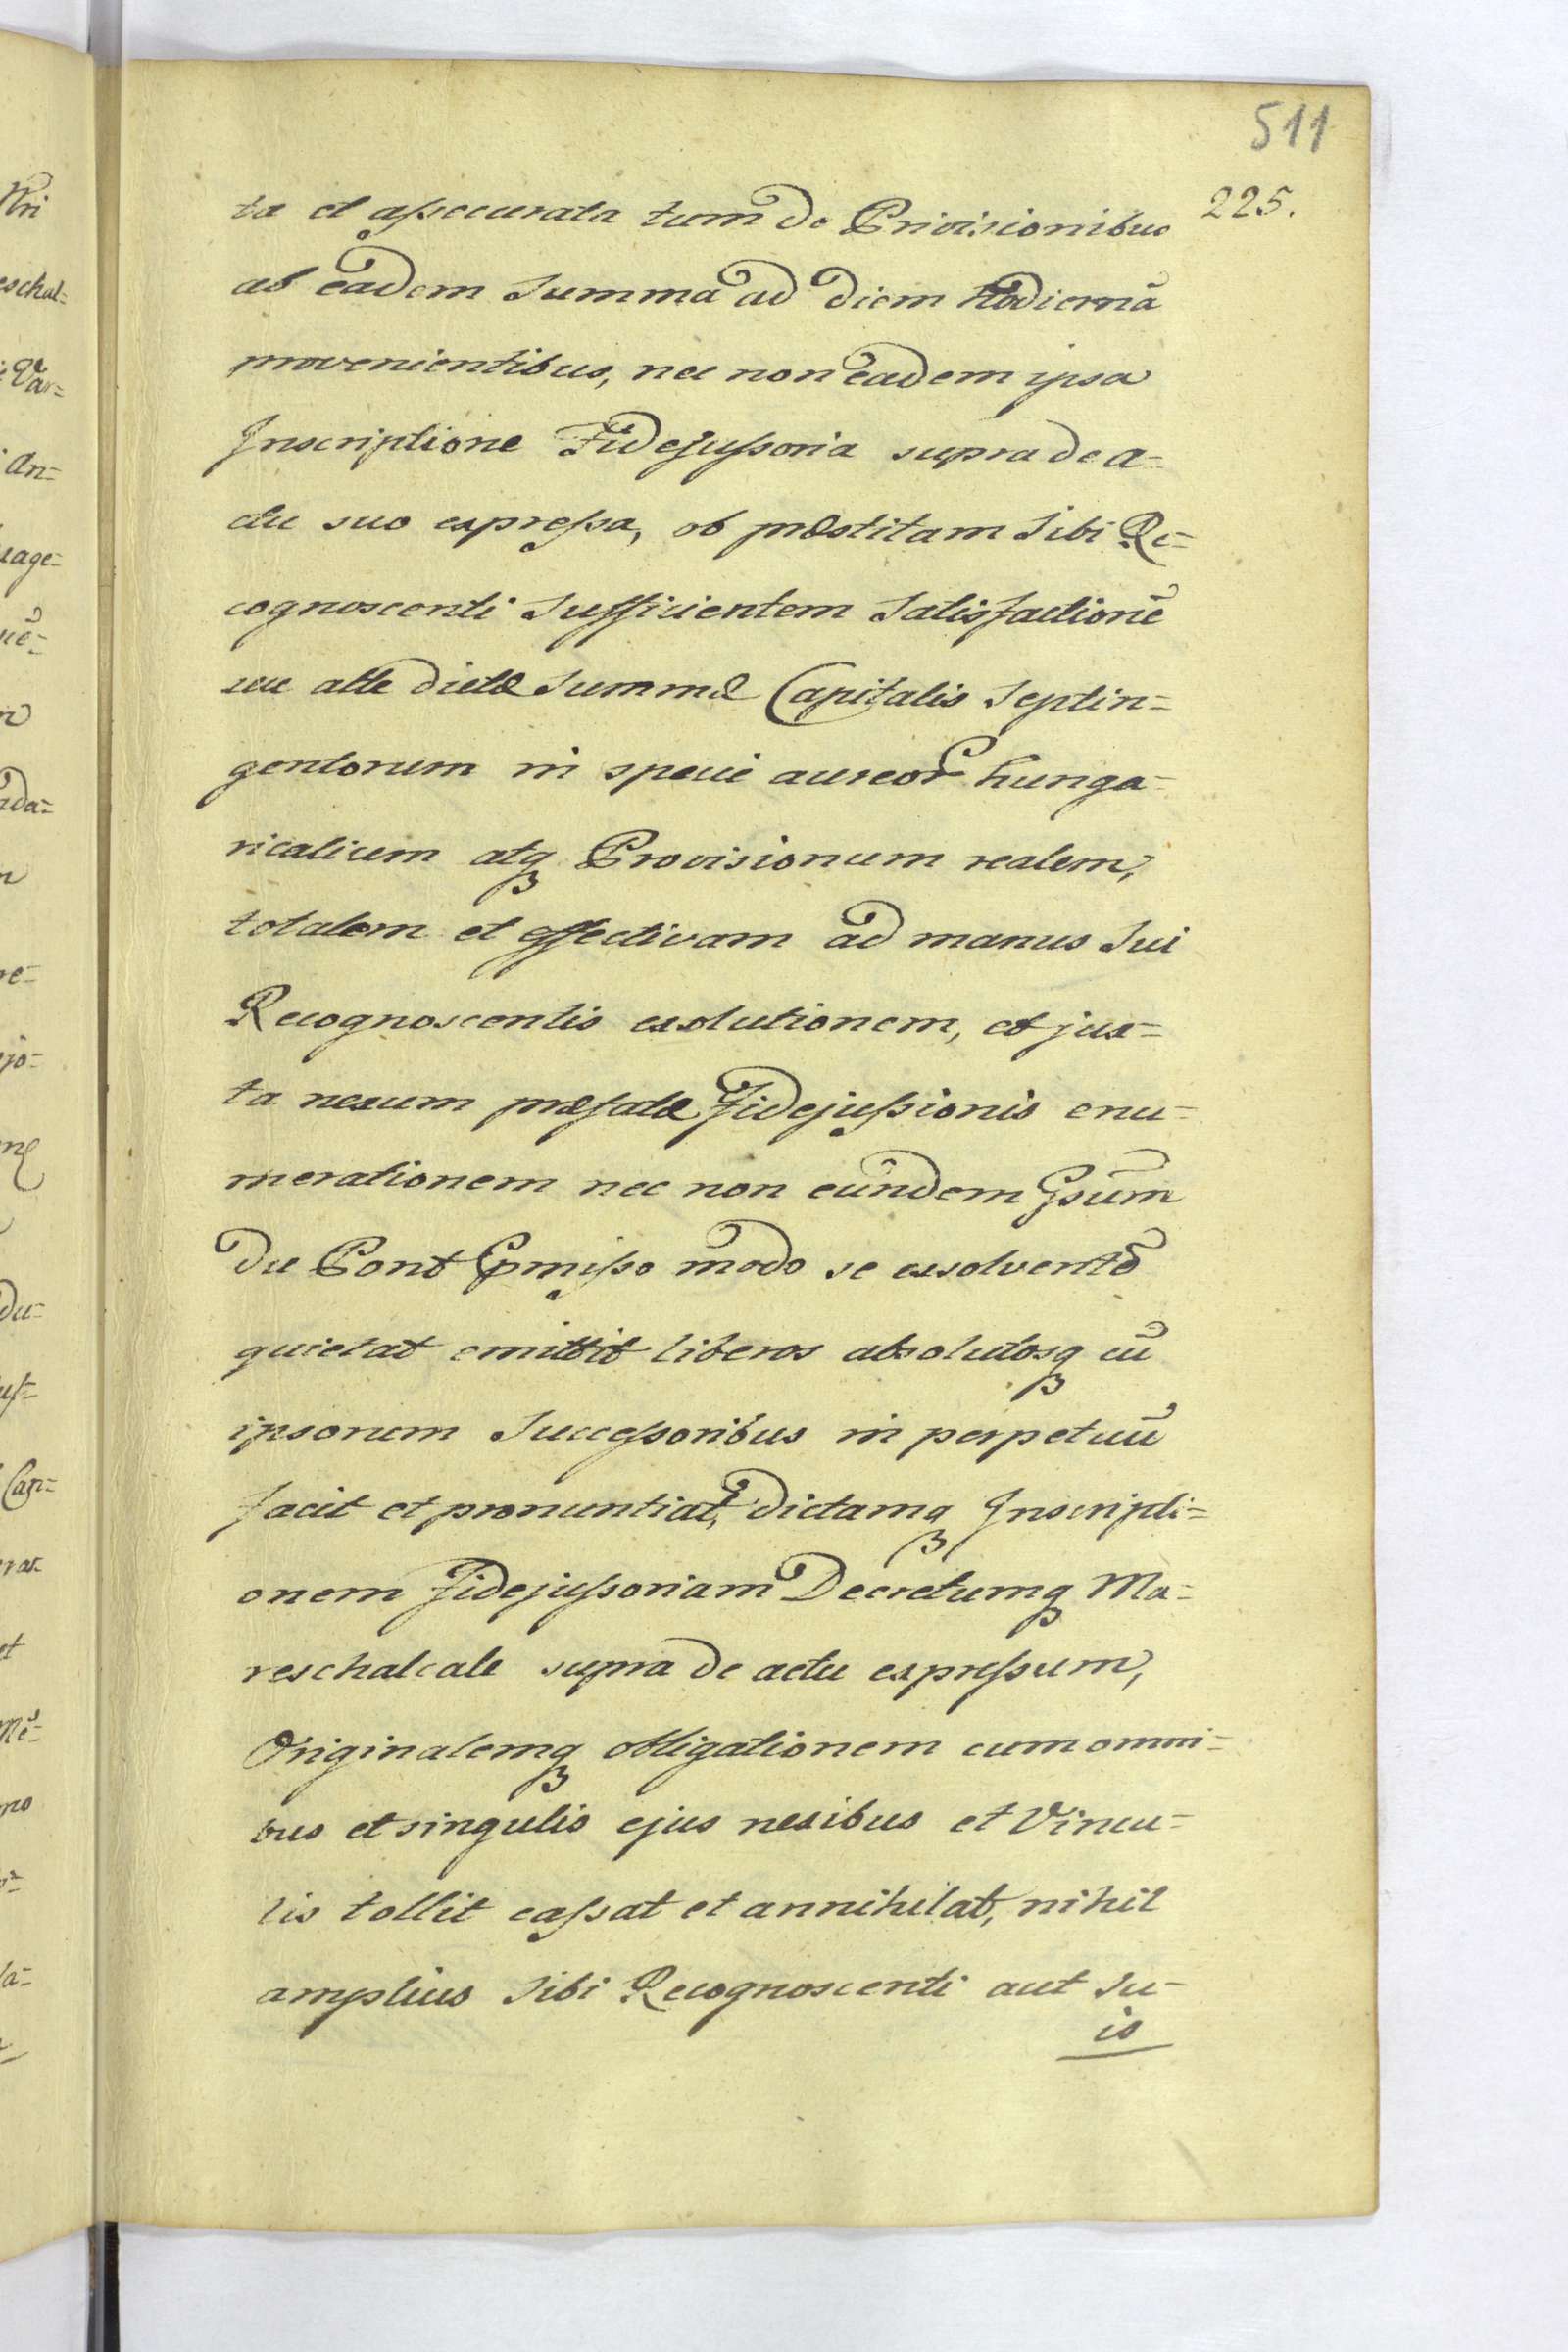 511
225.
ta et assecurata tum de Privisionibus
ab eadem Summa ad diem hodiernā
provenientibus, nec non eadem ipsa
Inscriptione Fidejussoria supra de a=
ctu suo expressa, ob præstitam Sibi Re=
cognoscenti Sufficientem Satisfactionē
seu alte dictæ Summæ Capitalis Septin=
gentorum in specie aureor hunga=
ricalium atq Provisionum realem,
totalem et effectivam ad manus Sui
Recognoscentis exolutionem, et jux=
ta nexum præfatæ Fidejussionis enu=
merationem nec non eundem Gsum
Du Pont Pmisso modo se exolventē
quietat emittit liberos absolutosq cū
ipsorum Successoribus in perpetuū
facit et pronuntiat, dictamq Inscripti=
onem Fidejussoriam Decretumq Ma=
reschalcale supra de actu expressum,
Originalemq obligationem cum omni=
bus et singulis ejus nexibus et Vincu=
lis tollit cassat et annihilat, nihil
amplius Sibi Recognoscenti aut Su=
is